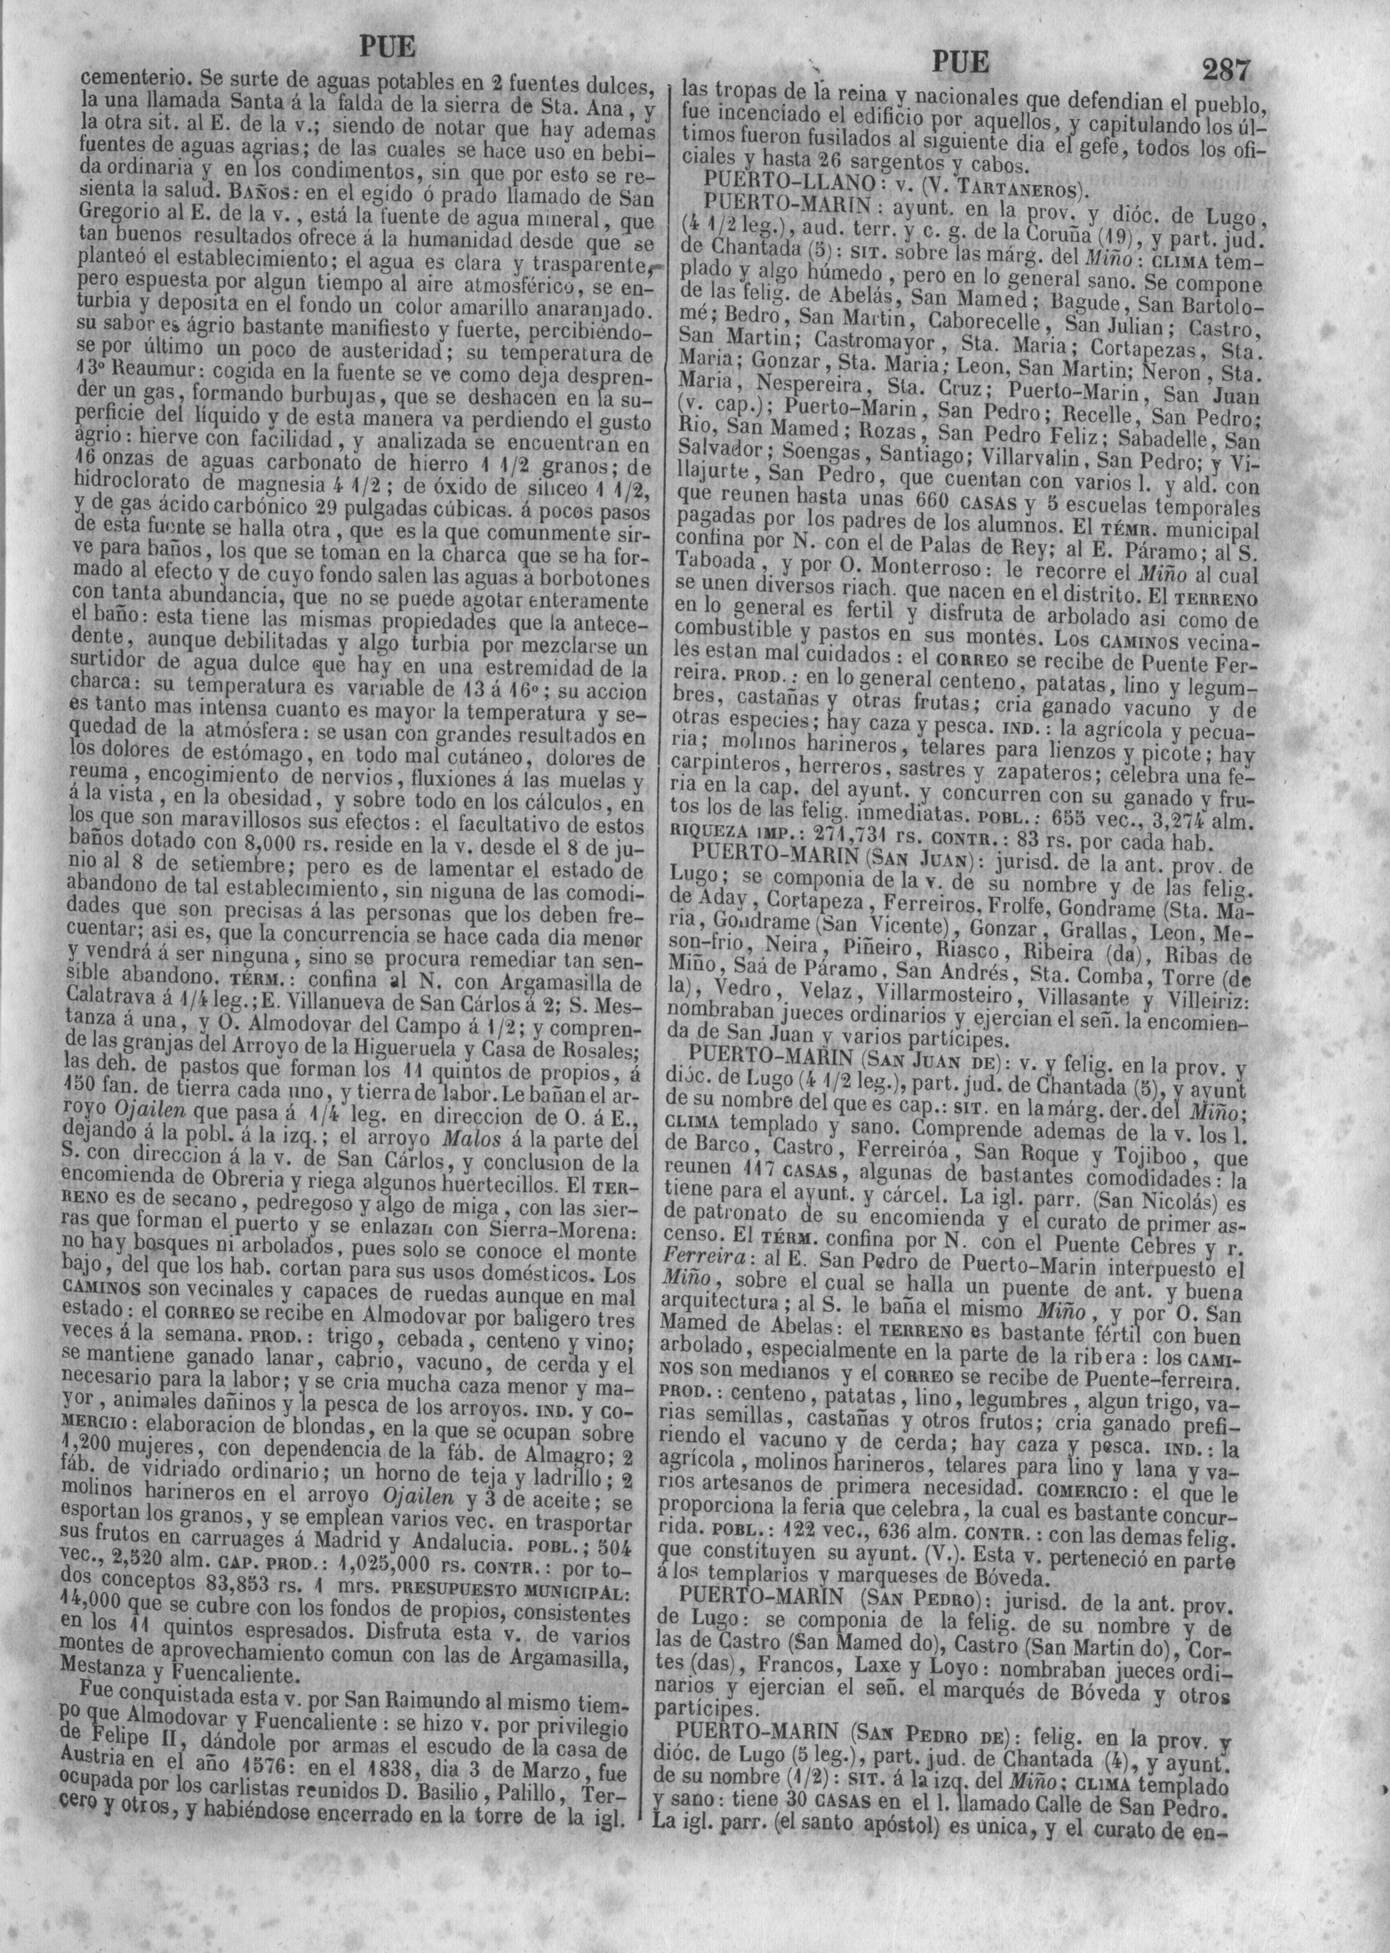 PUE
cementerio. Se surte de aguas potables en 2 fuentes dulces,
la una llamada Santa á la falda de la sierra de Sta. Ana, y
la otra sit. al E. de la v.; siendo de notar que hay ademas
fuentes de aguas agrias; de las cuales se hace uso en bebi-
da ordinaria y en los condimentos, sin que por esto se re-
sienta la salud. BAÑOS: en el egido ó prado llamado de San
Gregorio al E. de la v., está la fuente de agua mineral, que
tan buenos resultados ofrece á la humanidad desde que se
planteó el establecimiento; el agua es clara y trasparente,
pero espuesta por algun tiempo al aire atmosférico, se en-
turbia y deposita en el fondo un color amarillo anaranjado.
su sabor es ágrio bastante manifiesto y fuerte, percibiéndo-
se por último un poco de austeridad; su temperatura de
13º Reaumur: cogida en la fuente se ve como deja despren-
der un gas, formando burbujas, que se deshacen en la su-
perficie del líquido y de esta manera va perdiendo el gusto
agrio: hierve con facilidad, y analizada se encuentran en
16 onzas de aguas carbonato de hierro 1 1/2 granos; de
hidroclorato de magnesia 4 1/2; de óxido de siliceo 1 1/2,
y de gas ácido carbónico 29 pulgadas cúbicas. á pocos pasos
de esta fuente se halla otra, que es la que comunmente sir-
ve para baños, los que se toman en la charca que se ha for-
mado al efecto y de cuyo fondo salen las aguas á borbotones
con tanta abundancia, que no se puede agotar enteramente
el baño: esta tiene las mismas propiedades que la antece-
dente, aunque debilitadas y algo turbia por mezclarse un
surtidor de agua dulce que hay en una estremidad de la
charca: su temperatura es variable de 13 á 16º; su accion
es tanto mas intensa cuanto es mayor la temperatura y se-
quedad de la atmósfera: se usan con grandes resultados en
los dolores de estómago, en todo mal cutáneo, dolores de
reuma, encogimiento de nervios, fluxiones á las muelas y
á la vista, en la obesidad, y sobre todo en los cálculos, en
los que son maravillosos sus efectos: el facultativo de estos
baños dotado con 8,000 rs. reside en la v. desde el 8 de ju-
nio al 8 de setiembre; pero es de lamentar el estado de
abandono de tal establecimiento, sin niguna de las comodi-
dades que son precisas á las personas que los deben fre-
cuentar; asi es, que la concurrencia se hace cada dia menor
y vendrá á ser ninguna, sino se procura remediar tan sen-
sible abandono. TÉRM.: confina al N. con Argamasilla de
Calatrava á 1/4 leg.; E. Villanueva de San Cárlos á 2; S. Mes-
tanza á una, y O. Almodovar del Campo á 1/2; y compren-
de las granjas del Arroyo de la Higueruela y Casa de Rosales;
las deh. de pastos que forman los 11 quintos de propios, á
150 fan. de tierra cada uno, y tierra de labor. Le bañan el ar-
royo Ojailen que pasa á 1/4 leg. en direccion de O. á E.,
dejando á la pobl. á la izq.; el arroyo Malos á la parte del
S. con direccion á la v. de San Cárlos, y conclusion de la
encomienda de Obreria y riega algunos huertecillos. El TER-
RENO es de secano, pedregoso y algo de miga, con las sier-
ras que forman el puerto y se enlazan con Sierra-Morena:
no hay bosques ni arbolados, pues solo se conoce el monte
bajo, del que los hab. cortan para sus usos domésticos. Los
CAMINOS son vecinales y capaces de ruedas aunque en mal
estado: el CORREO se recibe en Almodovar por baligero tres
veces á la semana. PROD.: trigo, cebada, centeno y vino;
se mantiene ganado lanar, cabrio, vacuno, de cerda y el
necesario para la labor; y se cria mucha caza menor y ma-
yor, animales dañinos y la pesca de los arroyos. IND. Y CO-
MERCIO: elaboracion de blondas, en la que se ocupan sobre
1,200 mujeres, con dependencia de la fáb. de Almagro; 2
fáb. de vidriado ordinario; un horno de teja y ladrillo; 2
molinos harineros en el arroyo Ojailen y 3 de aceite; se
esportan los granos, y se emplean varios vec. en trasportar
sus frutos en carruages á Madrid y Andalucia. POBL.; 504
vec., 2,520 alm. CAP. PROD.: 1,025,000 rs. CONTR.: por to-
dos conceptos 83,853 rs. 1 mrs. PRESUPUESTO MUNICIPAL:
14,000 que se cubre con los fondos de propios, consistentes
en los 11 quintos espresados. Disfruta esta v. de varios
montes de aprovechamiento comun con las de Argamasilla,
Mestanza y Fuencaliente.
Fue conquistada esta v. por San Raimundo al mismo tiem-
po que Almodovar y Fuencaliente: se hizo v. por privilegio
de Felipe II, dándole por armas el escudo de la casa de
Austria en el año 1576: en el 1838, dia 3 de Marzo, fue
ocupada por los carlistas reunidos D. Basilio, Palillo, Ter-
cero y otros, y habiéndose encerrado en la torre de la igl.
PUE 287
las tropas de la reina y nacionales que defendian el pueblo,
fue incenciado el edificio por aquellos, y capitulando los úl-
timos fueron fusilados al siguiente dia el gefe, todos los ofi-
ciales y hasta 26 sargentos y cabos.
PUERTO-LLANO: v. (V. TARTANEROS).
PUERTO-MARIN: ayunt. en la prov. y dióc. de Lugo,
(4 1/2 leg.), aud. terr. y c. g. de la Coruña (19), y part. jud.
de Chantada (5): SIT. sobre las márg. del Miño: CLIMA tem-
plado y algo húmedo, pero en lo general sano. Se compone
de las felig. de Abelás, San Mamed; Bagude, San Bartolo-
mé; Bedro, San Martin, Caborecelle, San Julian; Castro,
San Martin; Castromayor, Sta. Maria; Cortapezas, Sta.
Maria; Gonzar, Sta. Maria; Leon, San Martin; Neron, Sta.
Maria, Nespereira, Sta. Cruz; Puerto-Marin, San Juan
(v. cap.); Puerto-Marin, San Pedro; Recelle, San Pedro;
Rio, San Mamed; Rozas, San Pedro Feliz; Sabadelle, San
Salvador; Soengas, Santiago; Villarvalin, San Pedro; y Vi-
llajurte, San Pedro, que cuentan con varios l. y ald. con
que reunen hasta unas 660 CASAS y 5 escuelas temporales
pagadas por los padres de los alumnos. El TÉMR. municipal
confina por N. con el de Palas de Rey; al E. Páramo; al S.
Taboada, y por O. Monterroso: le recorre el Miño al cual
se unen diversos riach. que nacen en el distrito. El TERRENO
en lo general es fertil y disfruta de arbolado asi como de
combustible y pastos en sus montes. Los CAMINOS vecina-
les estan mal cuidados: el CORREO se recibe de Puente Fer-
reira. PROD.: en lo general centeno, patatas, lino y legum-
bres, castañas y otras frutas; cria ganado vacuno y de
otras especies; hay caza y pesca. IND.: la agrícola y pecua-
ria; molinos harineros, telares para lienzos y picote; hay
carpinteros, herreros, sastres y zapateros; celebra una fe-
ria en la cap. del ayunt. y concurren con su ganado y fru-
tos los de las felig. inmediatas. POBL.: 655 vec., 3,274 alm.
RIQUEZA IMP.: 271,731 rs. CONTR.: 83 rs. por cada hab.
PUERTO-MARIN (SAN JUAN): jurisd. de la ant. prov. de
Lugo; se componia de la v. de su nombre y de las felig.
de Aday, Cortapeza, Ferreiros, Frolfe, Gondrame (Sta. Ma-
ria, Gondrame (San Vicente), Gonzar, Grallas, Leon, Me-
son-frio, Neira, Piñeiro, Riasco, Ribeira (da), Ribas de
Miño, Saá de Páramo, San Andrés, Sta. Comba, Torre (de
la), Vedro, Velaz, Villarmosteiro, Villasante y Villeiriz:
nombraban jueces ordinarios y ejercian el señ. la encomien-
da de San Juan y varios partícipes.
PUERTO-MARIN (SAN JUAN DE): v. y felig. en la prov. y
dióc. de Lugo (4 1/2 leg.), part. jud. de Chantada (5), y ayunt
de su nombre del que es cap.: SIT. en la márg. der. del Miño;
CLIMA templado y sano. Comprende ademas de la v. los l.
de Barco, Castro, Ferreiróa, San Roque y Tojiboo, que
reunen 117 CASAS, algunas de bastantes comodidades: la
tiene para el ayunt. y cárcel. La igl. parr. (San Nicolás) es
de patronato de su encomienda y el curato de primer as-
censo. El TÉRM. confina por N. con el Puente Cebres y r.
Ferreira: al E. San Pedro de Puerto-Marin interpuesto el
Miño, sobre el cual se halla un puente de ant. y buena
arquitectura; al S. le baña el mismo Miño, y por O. San
Mamed de Abelas: el TERRENO es bastante fértil con buen
arbolado, especialmente en la parte de la ribera: los CAMI-
NOS son medianos y el CORREO se recibe de Puente-ferreira.
PROD.: centeno, patatas, lino, legumbres, algun trigo, va-
rias semillas, castañas y otros frutos; cria ganado prefi-
riendo el vacuno y de cerda; hay caza y pesca. IND.: la
agrícola, molinos harineros, telares para lino y lana y va-
rios artesanos de primera necesidad. COMERCIO: el que le
proporciona la feria que celebra, la cual es bastante concur-
rida. POBL.: 122 vec., 636 alm. CONTR.: con las demas felig.
que constituyen su ayunt. (V.). Esta v. perteneció en parte
á los templarios y marqueses de Bóveda.
PUERTO-MARIN (SAN PEDRO): jurisd. de la ant. prov.
de Lugo: se componia de la felig. de su nombre y de
las de Castro (San Mamed do), Castro (San Martin do), Cor-
tes (das), Francos, Laxe y Loyo: nombraban jueces ordi-
narios y ejercian el señ. el marqués de Bóveda y otros
partícipes.
PUERTO-MARIN (SAN PEDRO DE): felig. en la prov. y
dióc. de Lugo (5 leg.), part. jud. de Chantada (4), y ayunt.
de su nombre (1/2): SIT. á la izq. del Miño; CLIMA templado
y sano: tiene 30 CASAS en el l. llamado Calle de San Pedro.
La igl. parr. (el santo apóstol) es única, y el curato de en-